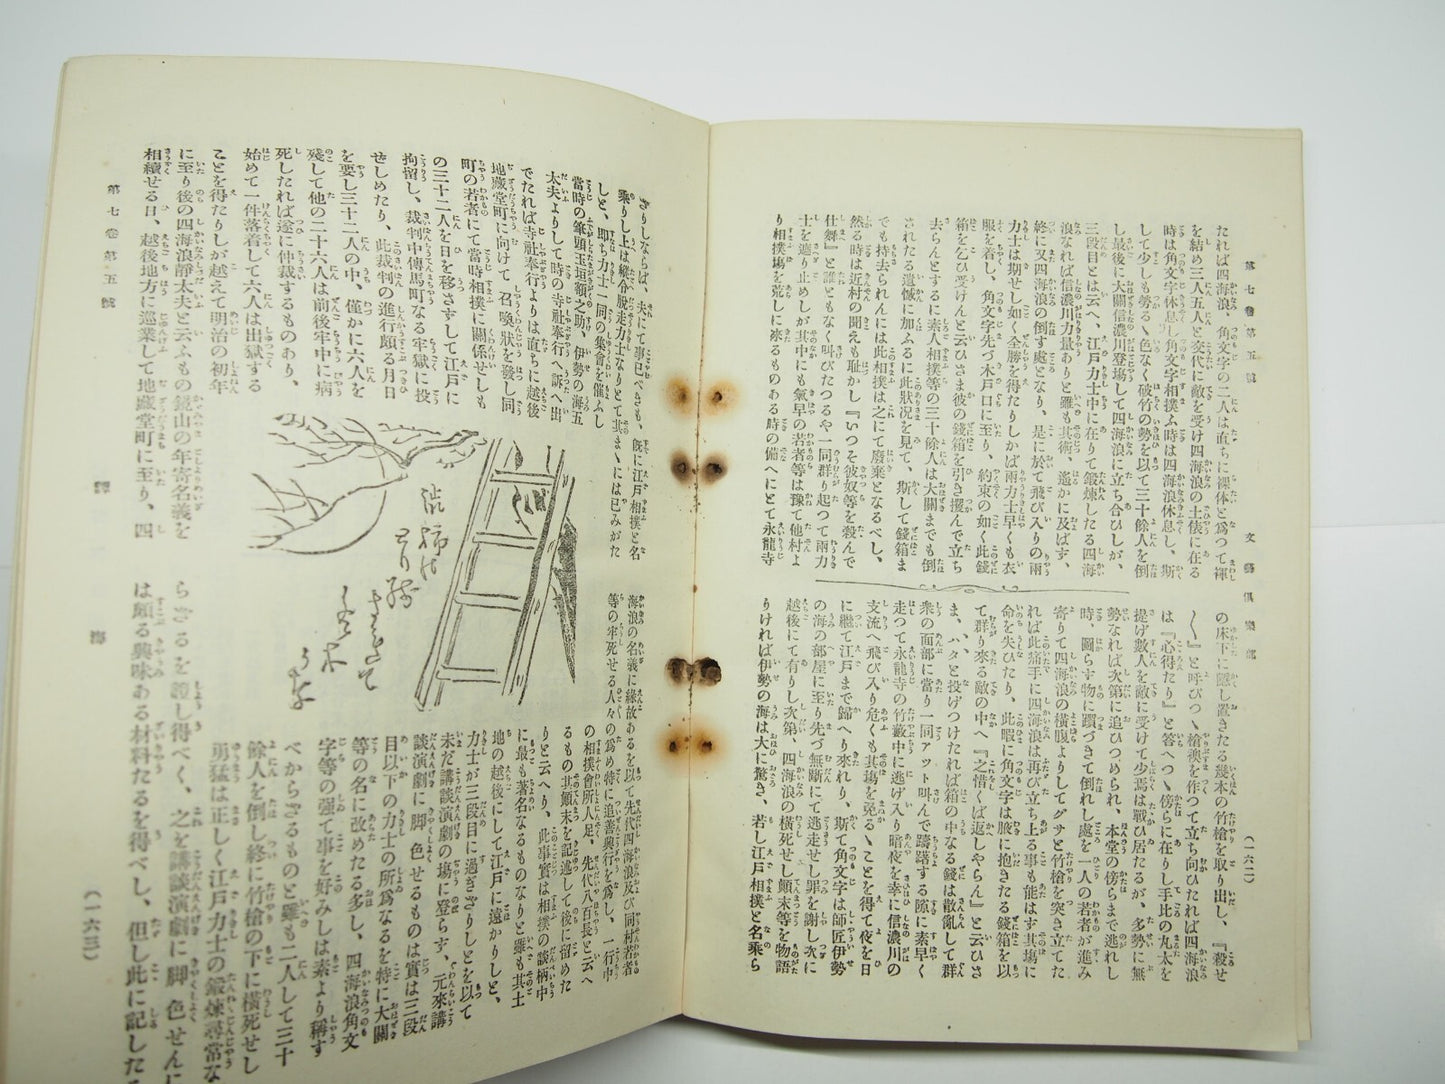 第七卷第五號
文藝俱樂部
(一六二)
たれば四海浪、角文字の二人は直ちに裸体と爲つて褌
を結め三人五人と交代に敵を受け四海浪の土俵に在る
時は角文字休息し角文字相撲ふ時は四海浪休息し、斯
して少しも勞るゝ色なく破竹の勢を以て三十餘人を倒
し最後に大關信濃川登塲して四海浪に立ち合ひしが、
三段目とは云へ、江戸力士中に在りて鍛煉したる四海
浪なれば信濃川力量ありと雖も其術、遙かに及ばず、
終に又四海浪の倒す處となり、是に於て飛び入りの兩
力士は期せし如く全勝を得たりしかば兩力士早くも衣
服を着し、角文字先づ木戸口に至り、約束の如く此錢
箱を乞ひ受けんと云ひさま彼の錢箱を引き攫んで立ち
去らんとするに素人相撲等の三十餘人は大關までも倒
されたる遺憾に加ふるに此狀况を見て、斯して錢箱ま
でも持去られんには此相撲は之にて廢棄となるべし、
然る時は近村の聞えも耻かし『いつそ彼奴等を殺んで
仕舞』と誰ともなく叫びたつるや一同群り起つて兩力
士を遮り止めしが其中にも氣早の若者等は豫て他村よ
り相撲塲を荒しに來るものある時の備へにとて永龍寺
の床下に隱し置きたる幾本の竹槍を取り出し、『殺せ
〱』と呼びつゝ槍襖を作つて立ち向ひたれば四海浪
は『心得たり』と答へつゝ傍らに在りし手比の丸太を
提げ數人を敵に受けて少焉は戰ひ居たるが、多勢に無
勢なれば次第に追ひつめられ、本堂の傍らまで逃れし
時、圖らず物に躓づきて倒れし處を一人の若者が進み
寄りて四海浪の橫腹よりしてグサと竹槍を突き立てた
れば此痛手に四海浪は再び立ち上る事も能はず其塲に
命を失ひたり、此暇に角文字は腋に抱きたる錢箱を以
て群り來る敵の中へ『之惜くば返しやらん』と云ひさ
ま、ハタと投げつけたれば箱の中なる錢は散亂して群
衆の面部に當り一同アツト叫んで躊躇する隙に素早く
走つて永龍寺の竹藪中に逃げ入り暗夜を幸に信濃川の
支流へ飛び入り危くも其塲を免るゝことを得て夜を日
に繼て江戸まで歸へり來れり、斯て角文字は師匠伊勢
の海の部屋に至り先づ無斷にて逃走せし罪を謝し次に
越後にて有りし次第、四海浪の橫死せし顚末等を物語
りければ伊勢の海は大に驚き、若し江戸相撲と名乘ら
ありしならば、夫にて事已べきも、既に江戸相撲と名
乘りし上は縱令脱走力士なりとて其まゝには已みがた
しと、即ち力士一同の集會を催ふし
當時の筆頭玉垣額之助、伊勢の海五
太夫よりして時の寺社奉行へ訴へ出
でたれば寺社奉行よりは直ちに越後
地藏堂町に向けて召喚狀を發し同
町の若者にて當時相撲に關係せしも
の三十二人を日を移さずして江戸に
拘留し、裁判中傳馬町なる牢獄に投
ぜしめたり、此裁判の進行頗る月日
を要し三十二人の中、僅かに六人を
殘して他の二十六人は前後牢中に病
死したれば遂に仲裁するものあり、
始めて一件落着して六人は出獄する
ことを得たりしが越えて明治の初年
に至り後の四海浪靜太夫と云ふもの鏡山の年寄名義を
相續せる日、越後地方に巡業して地藏堂町に至り、四
海浪の名義に緣故あるを以て先代四海浪及び同村若者
等の牢死せる人々の爲め特に追善興行を爲し、一行中
の相撲會所人足、先代八百長と云へ
るもの其顚末を記述して後に留めた
りと云へり、此事實は相撲の談柄中
に最も著名なるものなりと雖も其土
地の越後にして江戸に遠かりしと、
力士が三段目に過ぎざりしとを以て
未だ講談演劇の塲に登らず、元來講
談演劇に脚色せるものは實は三段
目以下の力士の所爲なるを特に大關
等の名に改めたる多し、四海浪角文
字等の强て事を好みしは素より稱す
べからざるものと雖も二人して三十
餘人を倒し終に竹槍の下に橫死せし
勇猛は正しく江戸力士の鍛煉尋常な
らざるを證し得べく、之を講談演劇に脚色せんに
は頗る興味ある材料たるを得べし、但し此に記した
第七卷第五號
(一六三)